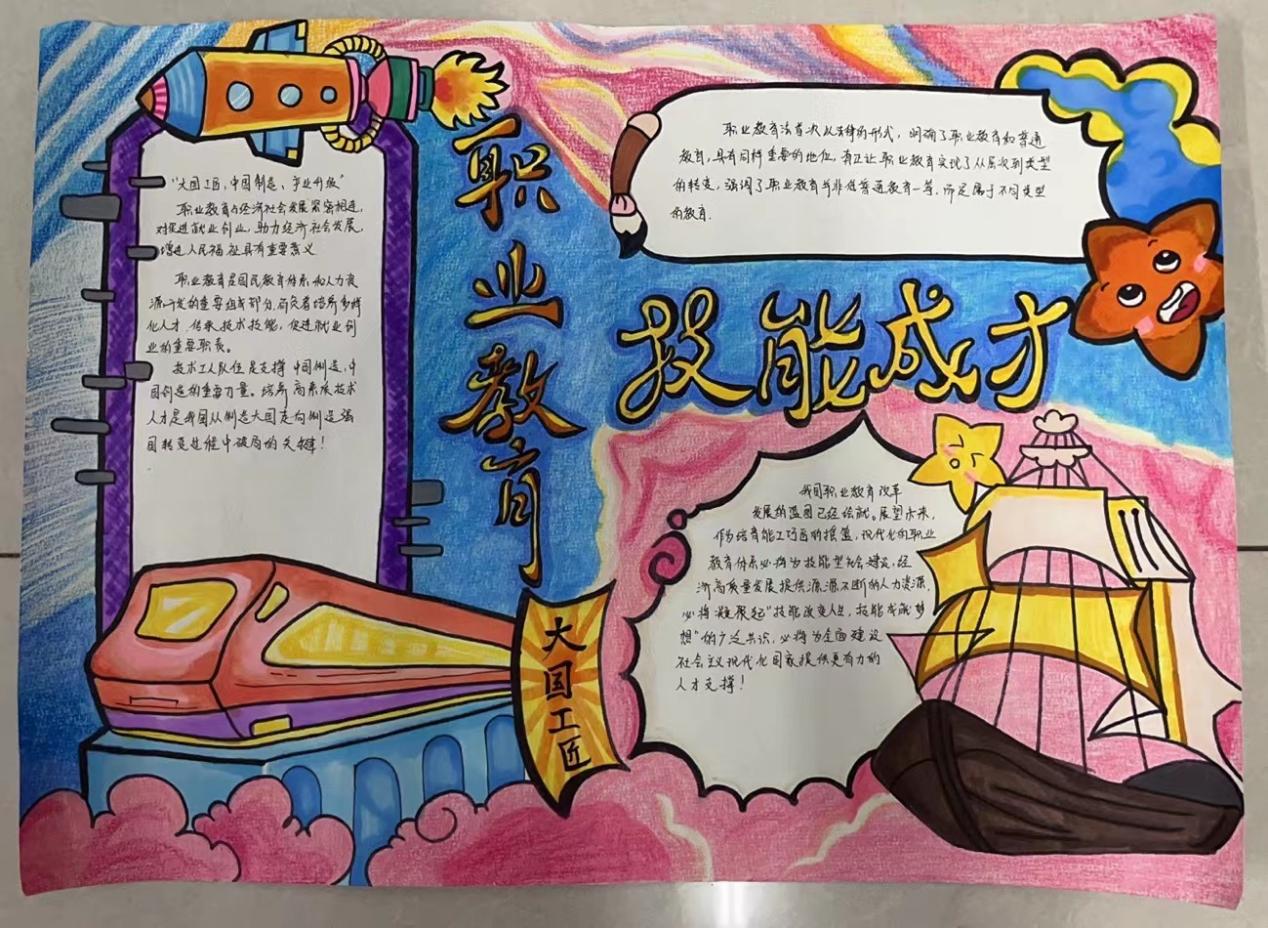 职业教育
技能成才
大国工匠
"大国工匠,中国制造、产业升级"
职业教育与经济社会发展紧密相连,
对促进就业创业,助力经济社会发展,
增进人民福祉具有重要意义
职业教育是国民教育体系和人力资
源开发的重要组成部分,肩负着培养多样
化人才、传承技术技能,促进就业创
业的重要职责。
技术工人队伍是支撑中国制造,中
国创造的重要力量。培养高素质技术
人才是我国从制造大国走向制造强
国转变过程中破局的关键!
职业教育法首次以法律的形式,明确了职业教育和普通
教育,具有同样重要的地位,真正让职业教育实现了从层次到类型
的转变,强调了职业教育并非低普通教育一等,而是属于不同类型
的教育.
我国职业教育改革
发展的蓝图已经绘就。展望未来,
作为培育能工巧匠的摇篮,现代化的职业
教育体系必将为技能型社会建设,经
济高质量发展提供源源不断的人力资源,
必将凝聚起"技能改变人生,技能成就梦
想"的广泛共识,必将为全面建设
社会主义现代化国家提供更有力的
人才支撑!